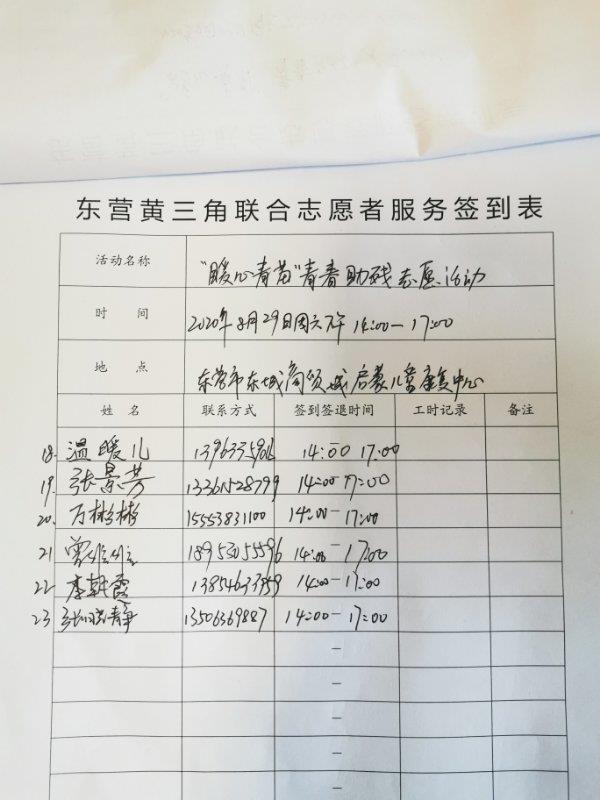 东营黄三角联合志愿者服务签到表
活动名称 "暖心青苗"青春助残志愿活动
时 间 2020年8月29日周六下午 14:00-17:00
地 点 东营市东城商贸城启蒙儿童康复中心
姓 名 联系方式 签到签退时间 工时记录 备注
18. 温暖儿 14:00 17:00
19. 张景芳 13361528799 14:00-17:00
20. 万彬彬 15553831100 14:00-17:00
21 曾 18953055596 14:00-17:00
22 李朝霞 14:00-17:00
23 张晓静 13506369887 14:00-17:00
-
-
-
-
-